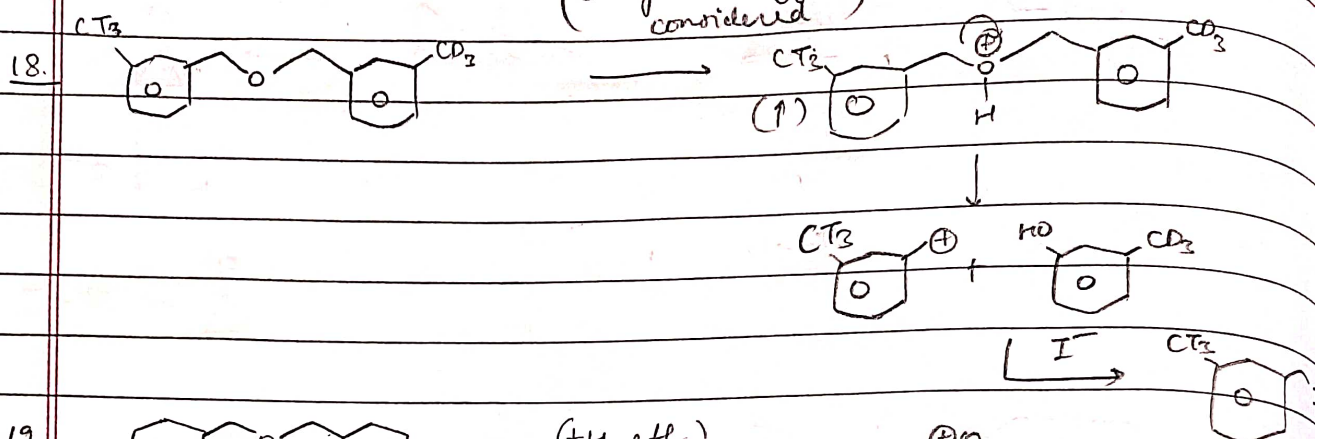 considered )
18. CT3 O O O CD3 ⟶ CT3 O ⊕ O H O CD3
(↑)
↓
CT3 O ⊕ + HO O CD3
I⁻ CT3 O
19